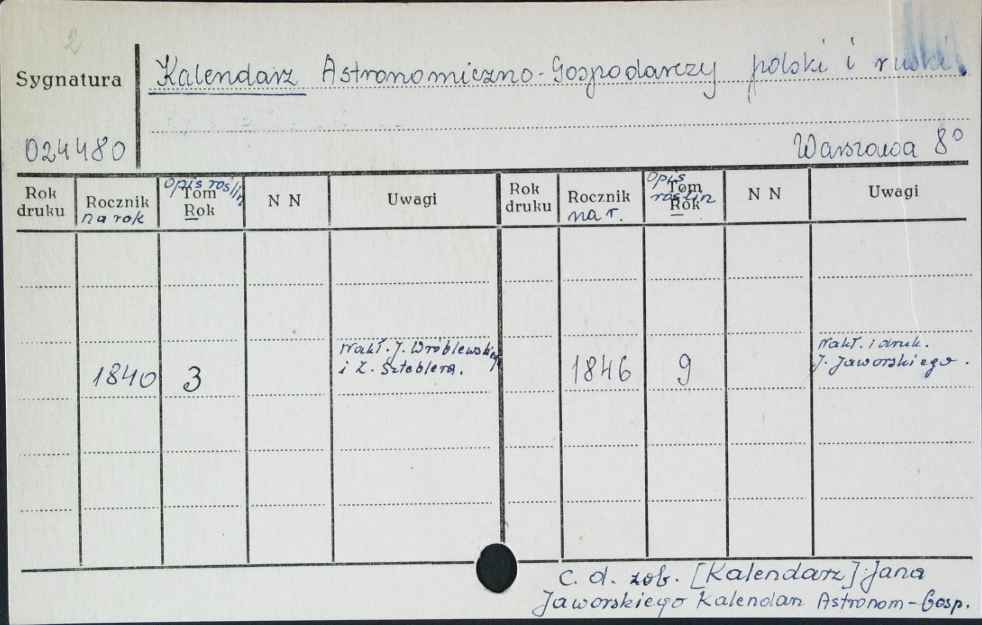 2
Sygnatura
Kalendarz Astronomiczno-Gospodarczy polski i ruski.
024480
Warszawa 8°
Rok druku
Rocznik na rok
Opis roślin Tom Rok
N N
Uwagi
Rok druku
Rocznik na r.
Opis roślin Tom Rok
N N
Uwagi
1840 3 Nakł. J. Wróblewskiej i Z. Szteblera.
1846 9 Nakł. i druk. J. Jaworskiego.
C. d. zob. [Kalendarz] Jana
Jaworskiego Kalendarz Astronom-Gosp.